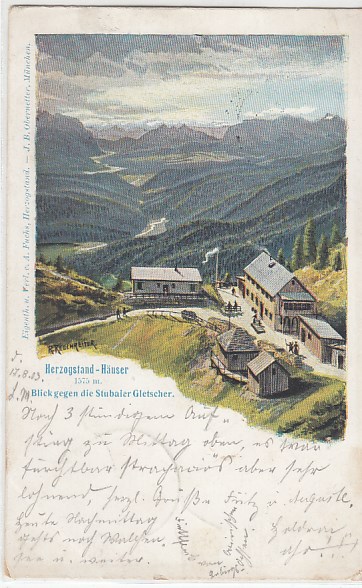 Eigenth. u. Verl. v. A. Fuchs, Herzogstand. — J. B. Obernetter, München.
Herzogstand-Häuser
1575 m.
Blick gegen die Stubaier Gletscher.
17.8.03
Noch 3 stündigem Auf-
stieg zu Mittag oben, es war
furchtbar strapaziös aber sehr
lohnend, herzl. Grüße Fritz u. Auguste.
heute Nachmittag
gehts noch
See u. weiter.